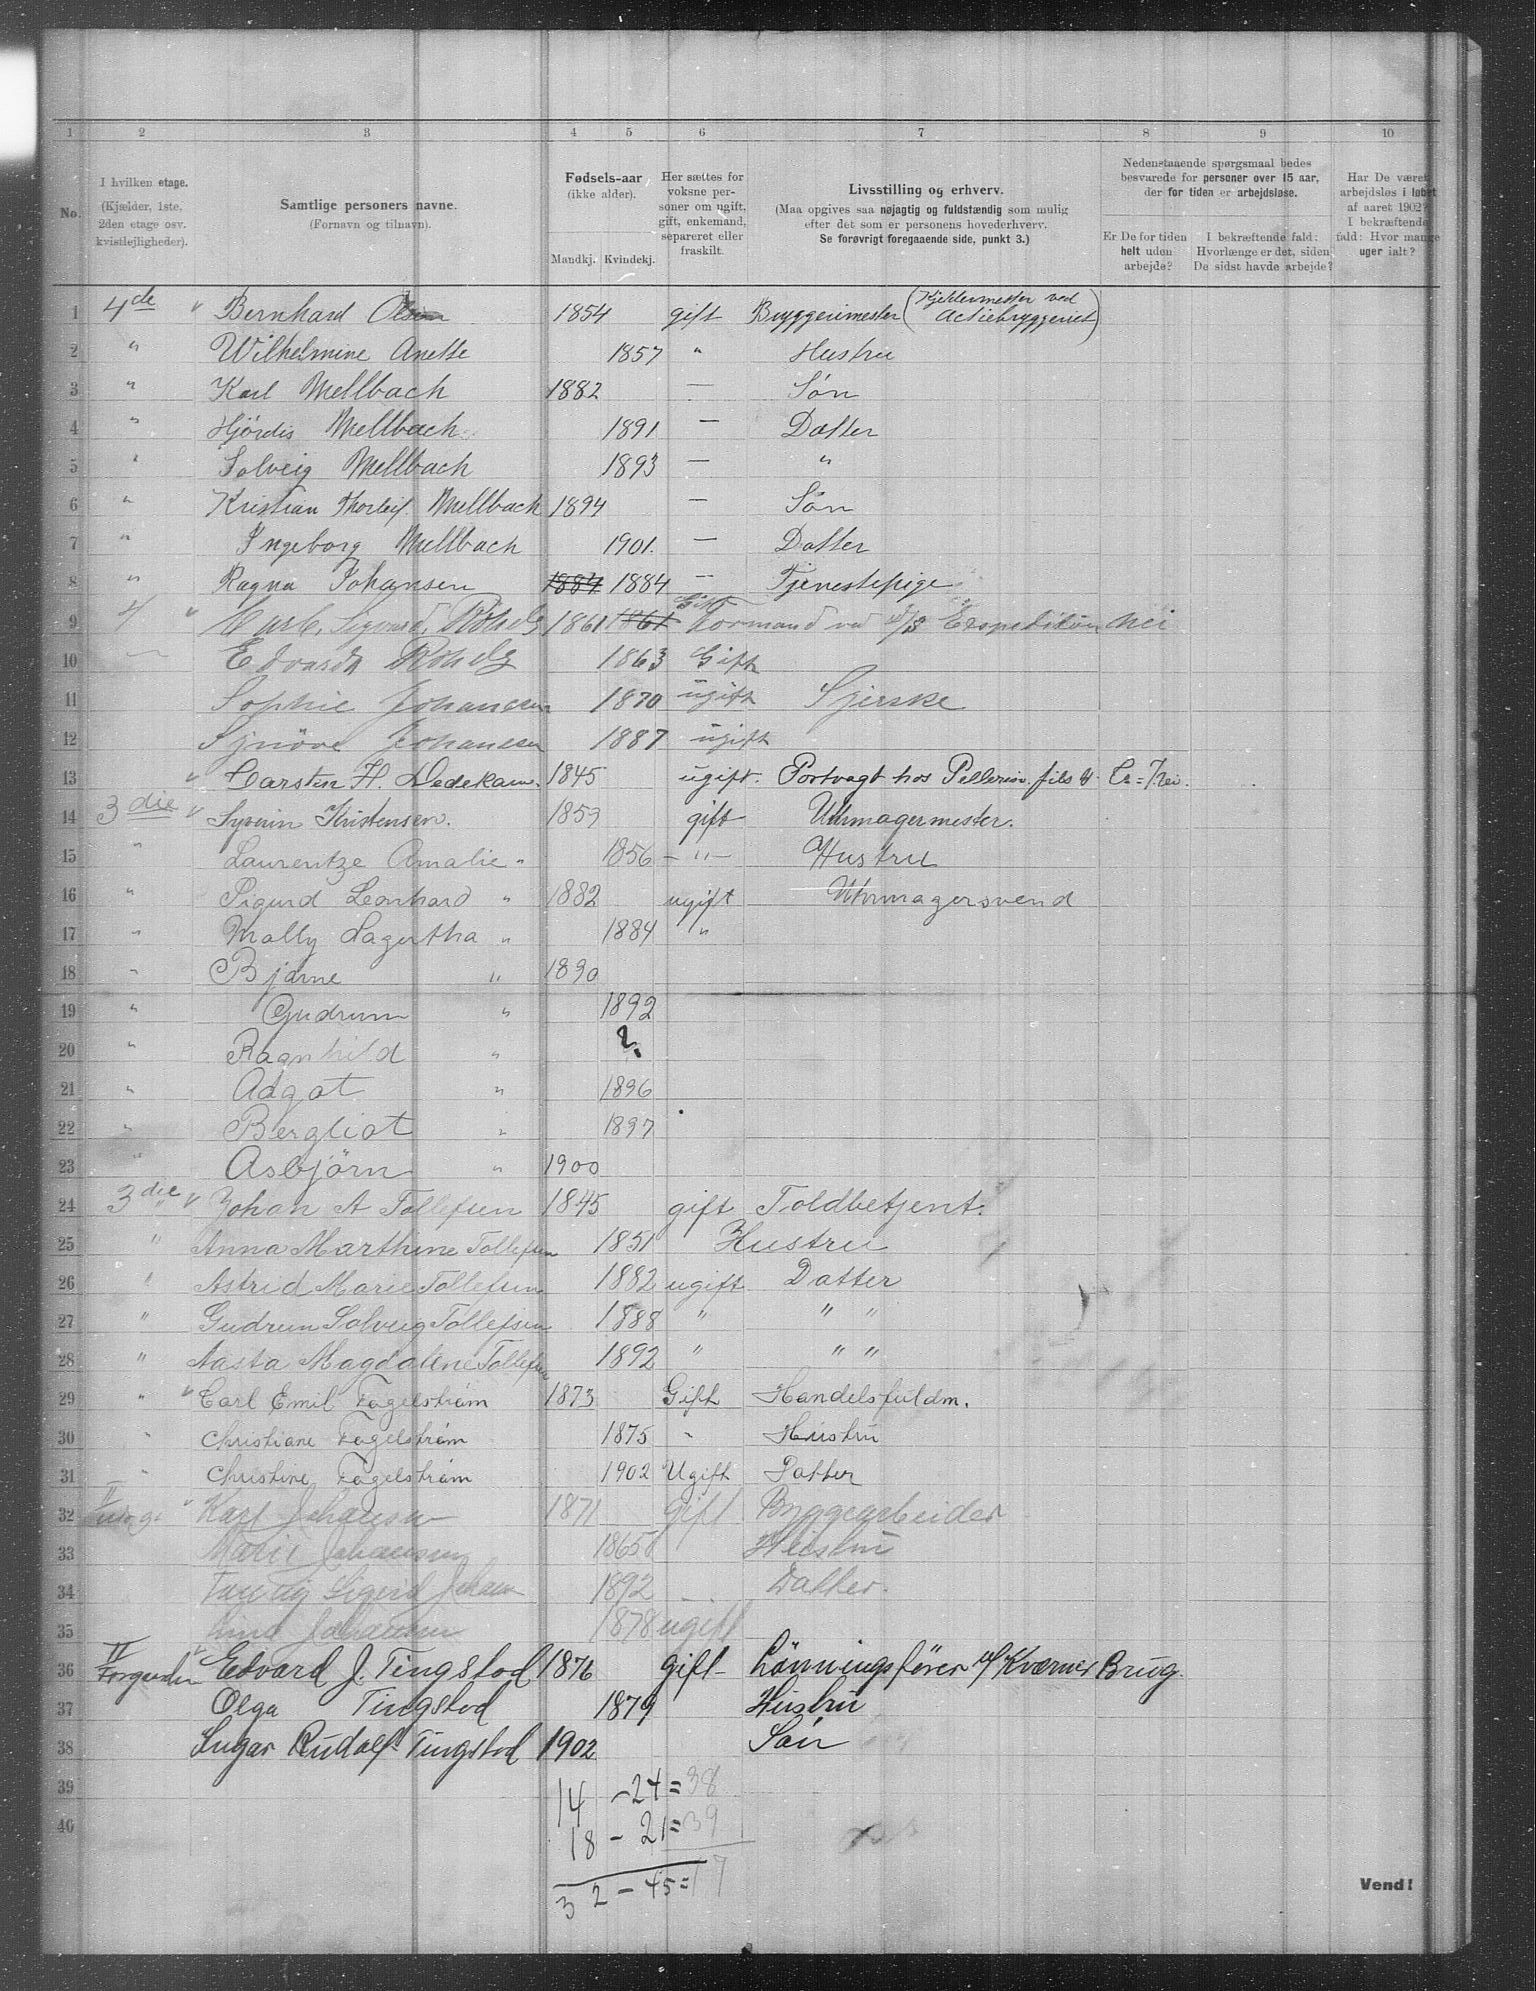 1 2 3 4 5 6 7 8 9 10
No.
I hvilken etage.
(Kjælder, 1ste. 2den etage osv. kvistlejligheder).
Samtlige personers navne.
(Fornavn og tilnavn).
Fødsels-aar
(ikke alder).
Mandkj. Kvindekj.
Her sættes for voksne personer om ugift, gift, enkemand, separeret eller fraskilt.
Livsstilling og erhverv.
(Maa opgives saa nøjagtig og fuldstændig som mulig efter det som er personens hovederhverv.
Se forøvrigt foregaaende side, punkt 3.)
Nedenstaaende spørgsmaal bedes besvarede for personer over 15 aar, der for tiden er arbejdsløse.
Er De for tiden helt uden arbejde?
I bekræftende fald: Hvorlænge er det, siden De sidst havde arbejde?
Har De været arbejdsløs i løbet af aaret 1902? I bekræftende fald: Hvor mange uger ialt?
1 4de " Bernhard 1854 gift Bryggerimester (Kjeldermester ved Actiebryggeriet)
2 " Wilhelmine Anette 1857 " Hustru
3 " Karl Mellbach 1882 — Søn
4 " Hjördis Mellbach 1891 — Datter
5 " Solveig Mellbach 1893 — "
6 " Kristian Thorleif Mellbach 1894 — Søn
7 " Ingeborg Mellbach 1901. — Datter
8 " Ragna Johansen 1884 1884 — Tjenestepige
9 4 " 1861 1861 Gift Formand ved Expedition Nei
10 Edvarda 1863 Gift
11 Sophie Johansen 1870 ugift Syerske
12 Synöve Johansen 1887 ugift
13 " Carsten H. Dedekam. 1845 ugift. Portvagt hos Pellerin, fils &
14 3die " Syverin Kristensen. 1859 gift Uhrmagermester.
15 " Laurentze Amalie " 1856 — " — Hustru
16 " Sigurd Leonhard " 1882 ugift Uhrmagersvend
17 " Molly Lagertha " 1884 "
18 " Bjarne " 1890
19 " Gudrum " 1892
20 " Ragnhild " ?
21 " Adgot " 1896
22 " Bergliot " 1897
23 " Asbjörn " 1900
24 3die " Johan A Tollefsen 1845 gift Toldbetjent.
25 " Anna Marthine Tollefsen 1851 Hustru
26 " Astrid Marie Tollefsen 1882 ugift Datter
27 " Gudrun Solveig Tollefsen 1888 " " "
28 " Aasta Magdalene Tollefsen 1892 " " "
29 " " Carl Emil Fagelström 1873 Gift Handelsfuldm.
30 " Christiane Fagelström 1875 " Hustru
31 " Christine Fagelström 1902 Ugift Datter
32 II " Karl Johansen 1871 gift Byggearbeider
33 Marie Johansen 1865 Hustru
34 Sigrid Johansen 1892 Datter.
35 Johansen 1878 ugift
36 II Forgaarden Edvard J. Tingstod 1876 gift Lönningsfører v/ Kværner Brug.
37 Olga Tingstod 1879 Hustru
38 Rudolf Tingstod 1902 Søn
39
40
14 – 24 = 38
18 – 21 = 39
32 – 45 = 17
Vend!